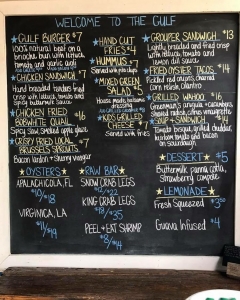 WELCOME TO THE GULF
GULF BURGER $7
100% natural beef on a
brioche bun with lettuce
tomato and garlic aioli
CHICKEN SANDWICH $7
Hand breaded tenders fried
crisp with lettuce tomato and
spicy buttermilk sauce
CHICKEN FRIED $16
BOBWHITE QUAIL
Spicy slaw, smoked apple glaze
CRISPY FRIED LOCAL $7
BRUSSELS SPROUTS
Bacon lardon + sherry vinegar
HAND CUT $4
FRIES
HUMMUS $7
Served with pita chips
MIXED GREEN $5
SALAD
House made balsamic
KIDS GRILLED $6
CHEESE
Served with fries
GROUPER SANDWICH $13
Lightly breaded and fried crisp
with lettuce tomato and
lemon dill sauce
FRIED OYSTER TACOS $14
Pickled red onions, charred
corn, cilantro
GRILLED WAHOO $16
shaved radish, citrus vinaigrette
SOUP COMBO
Tomato bisque, grilled cheddar,
heirloom tomato and bacon
on sourdough
OYSTERS
APALACHICOLA, FL
$10/$18
VIRGINICA, LA
$10/$18
RAW BAR
SNOW CRAB LEGS
$12/$22
KING CRAB LEGS
$18/$35
PEEL + EAT SHRIMP
$8/$14
DESSERT $5
Buttermilk panna cotta,
Strawberry compote
LEMONADE
Fresh Squeezed $3.50
Guava Infused $4